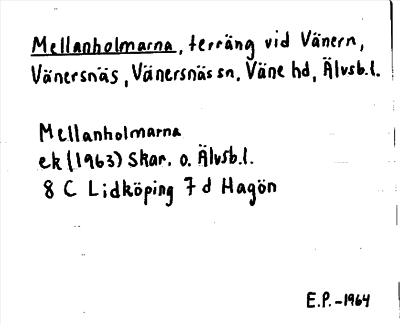 Mellanholmarna, terräng vid Vänern,
Vänersnäs, Vänersnäs sn, Väne hd, Älvsb.l.
Mellanholmarna
ek (1963) Skar. o. Älvsb.l.
8 C Lidköping 7 d Hagön
E.P. -1964